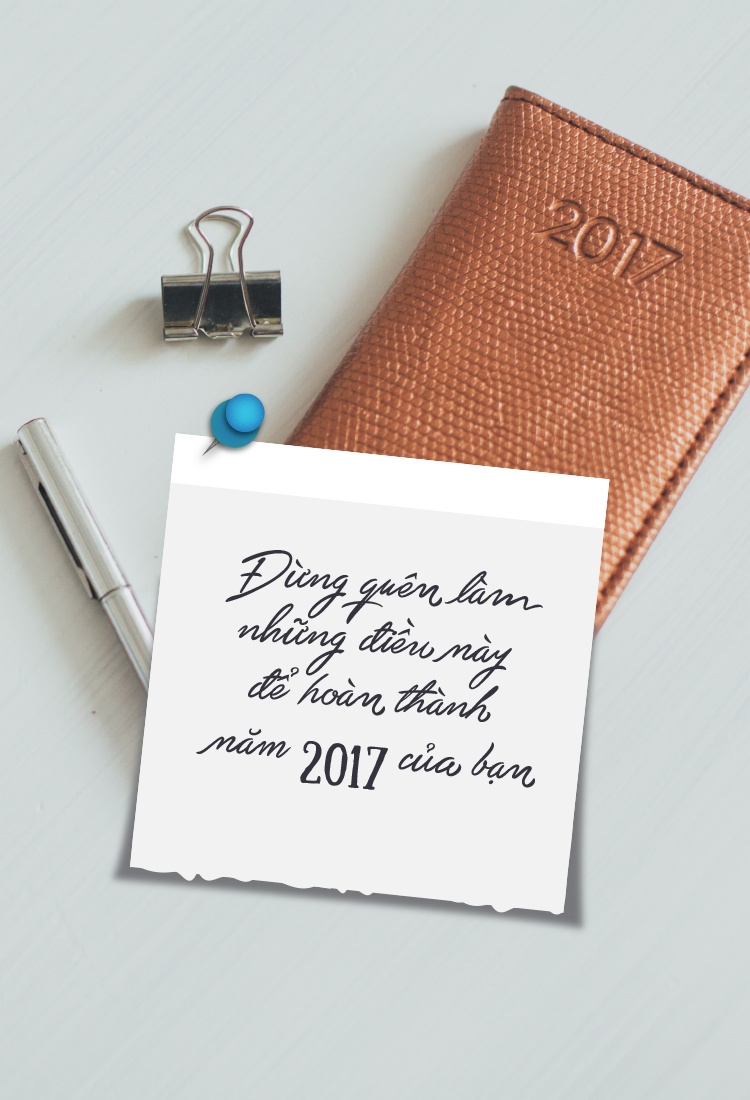 2017
Đừng quên làm
những điều này
để hoàn thành
năm 2017 của bạn